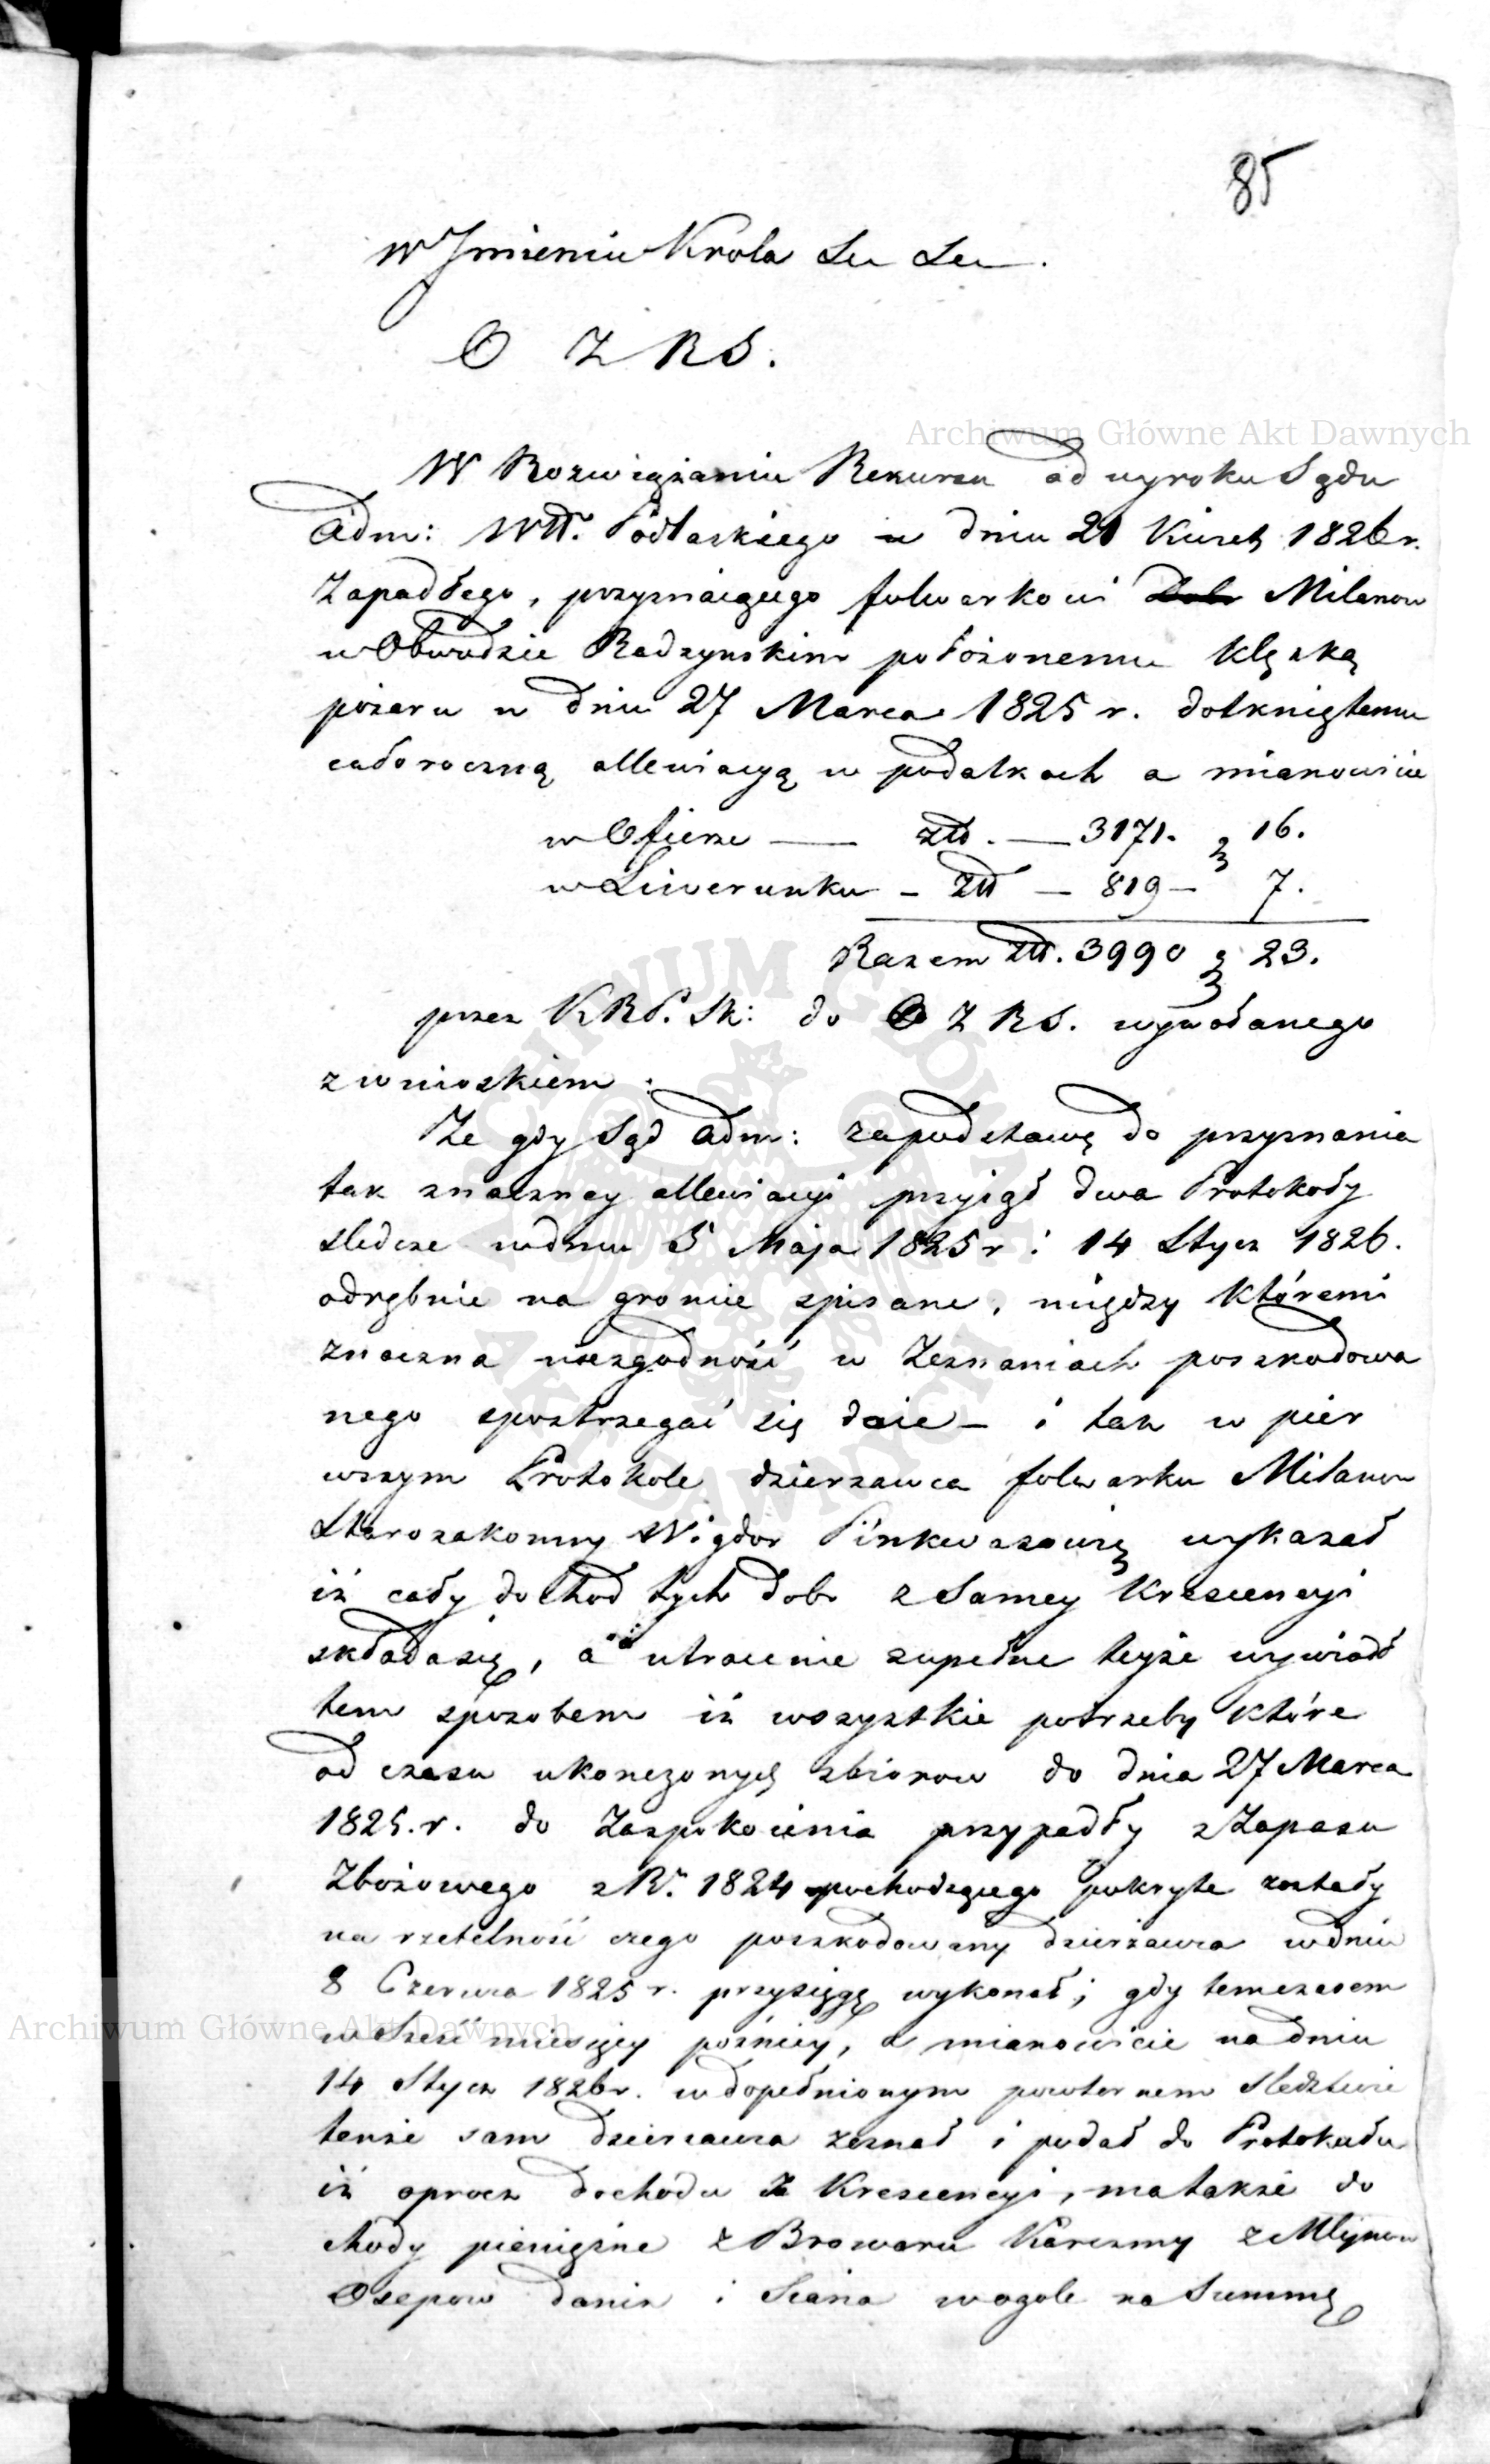 85
W Imieniu Krola &c &c.
O Z RS.
Archiwum Główne Akt Dawnych
W Rozwiązaniu Rekursu od wyroku Sądu
Adm: Wtt. Podlaskiego w dniu 21 Kwiet 1826 r.
Zapadłego, przyznaiącego folwarkowi Dobr Milanow
w Obwodzie Radzynskim położonemu klęską
pożaru w dniu 27 Marca 1825 r. dotkniętemu
całoroczną allewiacyą w podatkach a mianowicie
w Ofierze — złł. — 3171. g 16.
w Liwerunku – złł — 819 – 7.
Razem złł. 3990 g 23.
przez KRP. Sk: do O Z RS. wywołanego
z wnioskiem:
Że gdy Sąd Adm: za podstawę do przyznania
tak znaczney allewiacyi przyiął dwa Protokoły
sledcze w dniu 5 Maja 1825 r i 14 Stycz 1826.
odrębnie na groncie spisane, między któremi
znaczna niezgodność w Zeznaniach poszkodowa
nego spostrzegać się daie – i tak w pier
wszym Protokole dzierzawca folwarku Milanow
Starozakonny Wigdor Pinkwaszowicz wykazał
iż cały dochod tych dobr z samey Krescencyi
składa się, a utracenie zupełne teyże wywiódł
tem sposobem iż wszystkie potrzeby które
od czasu ukonczonych zbiorow do dnia 27 Marca
1825. r. do Zaspokoienia przypadły z Zapasu
Zbożowego z R. 1824 pochodzącego pokryte zostały
na rzetelność czego poszkodowany dzierżawca w dniu
8 Czerwca 1825 r. przysięgę wykonał; gdy temczasem
w sześć miesięcy pozniey, a mianowicie na dniu
Archiwum Główne Akt Dawnych
14 Stycz 1826 r. w dopełnionym powtornem sledztwie
tenże sam dzierzawca zeznał i podał do Protokułu
iż oprocz dochodu z Krescencyi, ma także do
chody pieniężne z Browaru Karczmy z Mlynow
Osepow danin i Siana wogole na Summę